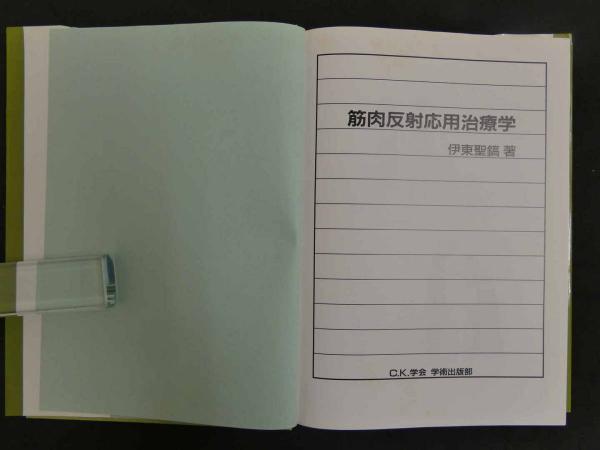 筋肉反射応用治療学
伊東聖鎬 著
C.K.学会 学術出版部